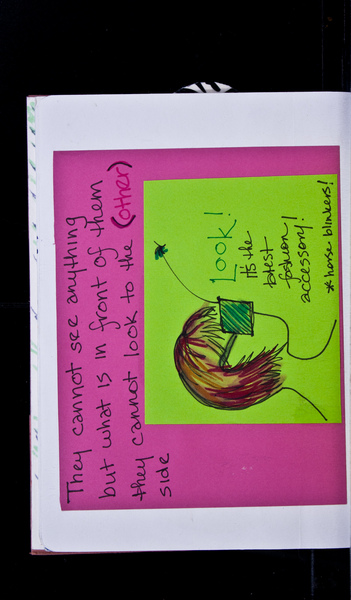 They cannot see anything
but what is in front of them
they cannot look to the (other)
side
Look!
It's the
latest
fashion
accessory!
*horse blinkers!